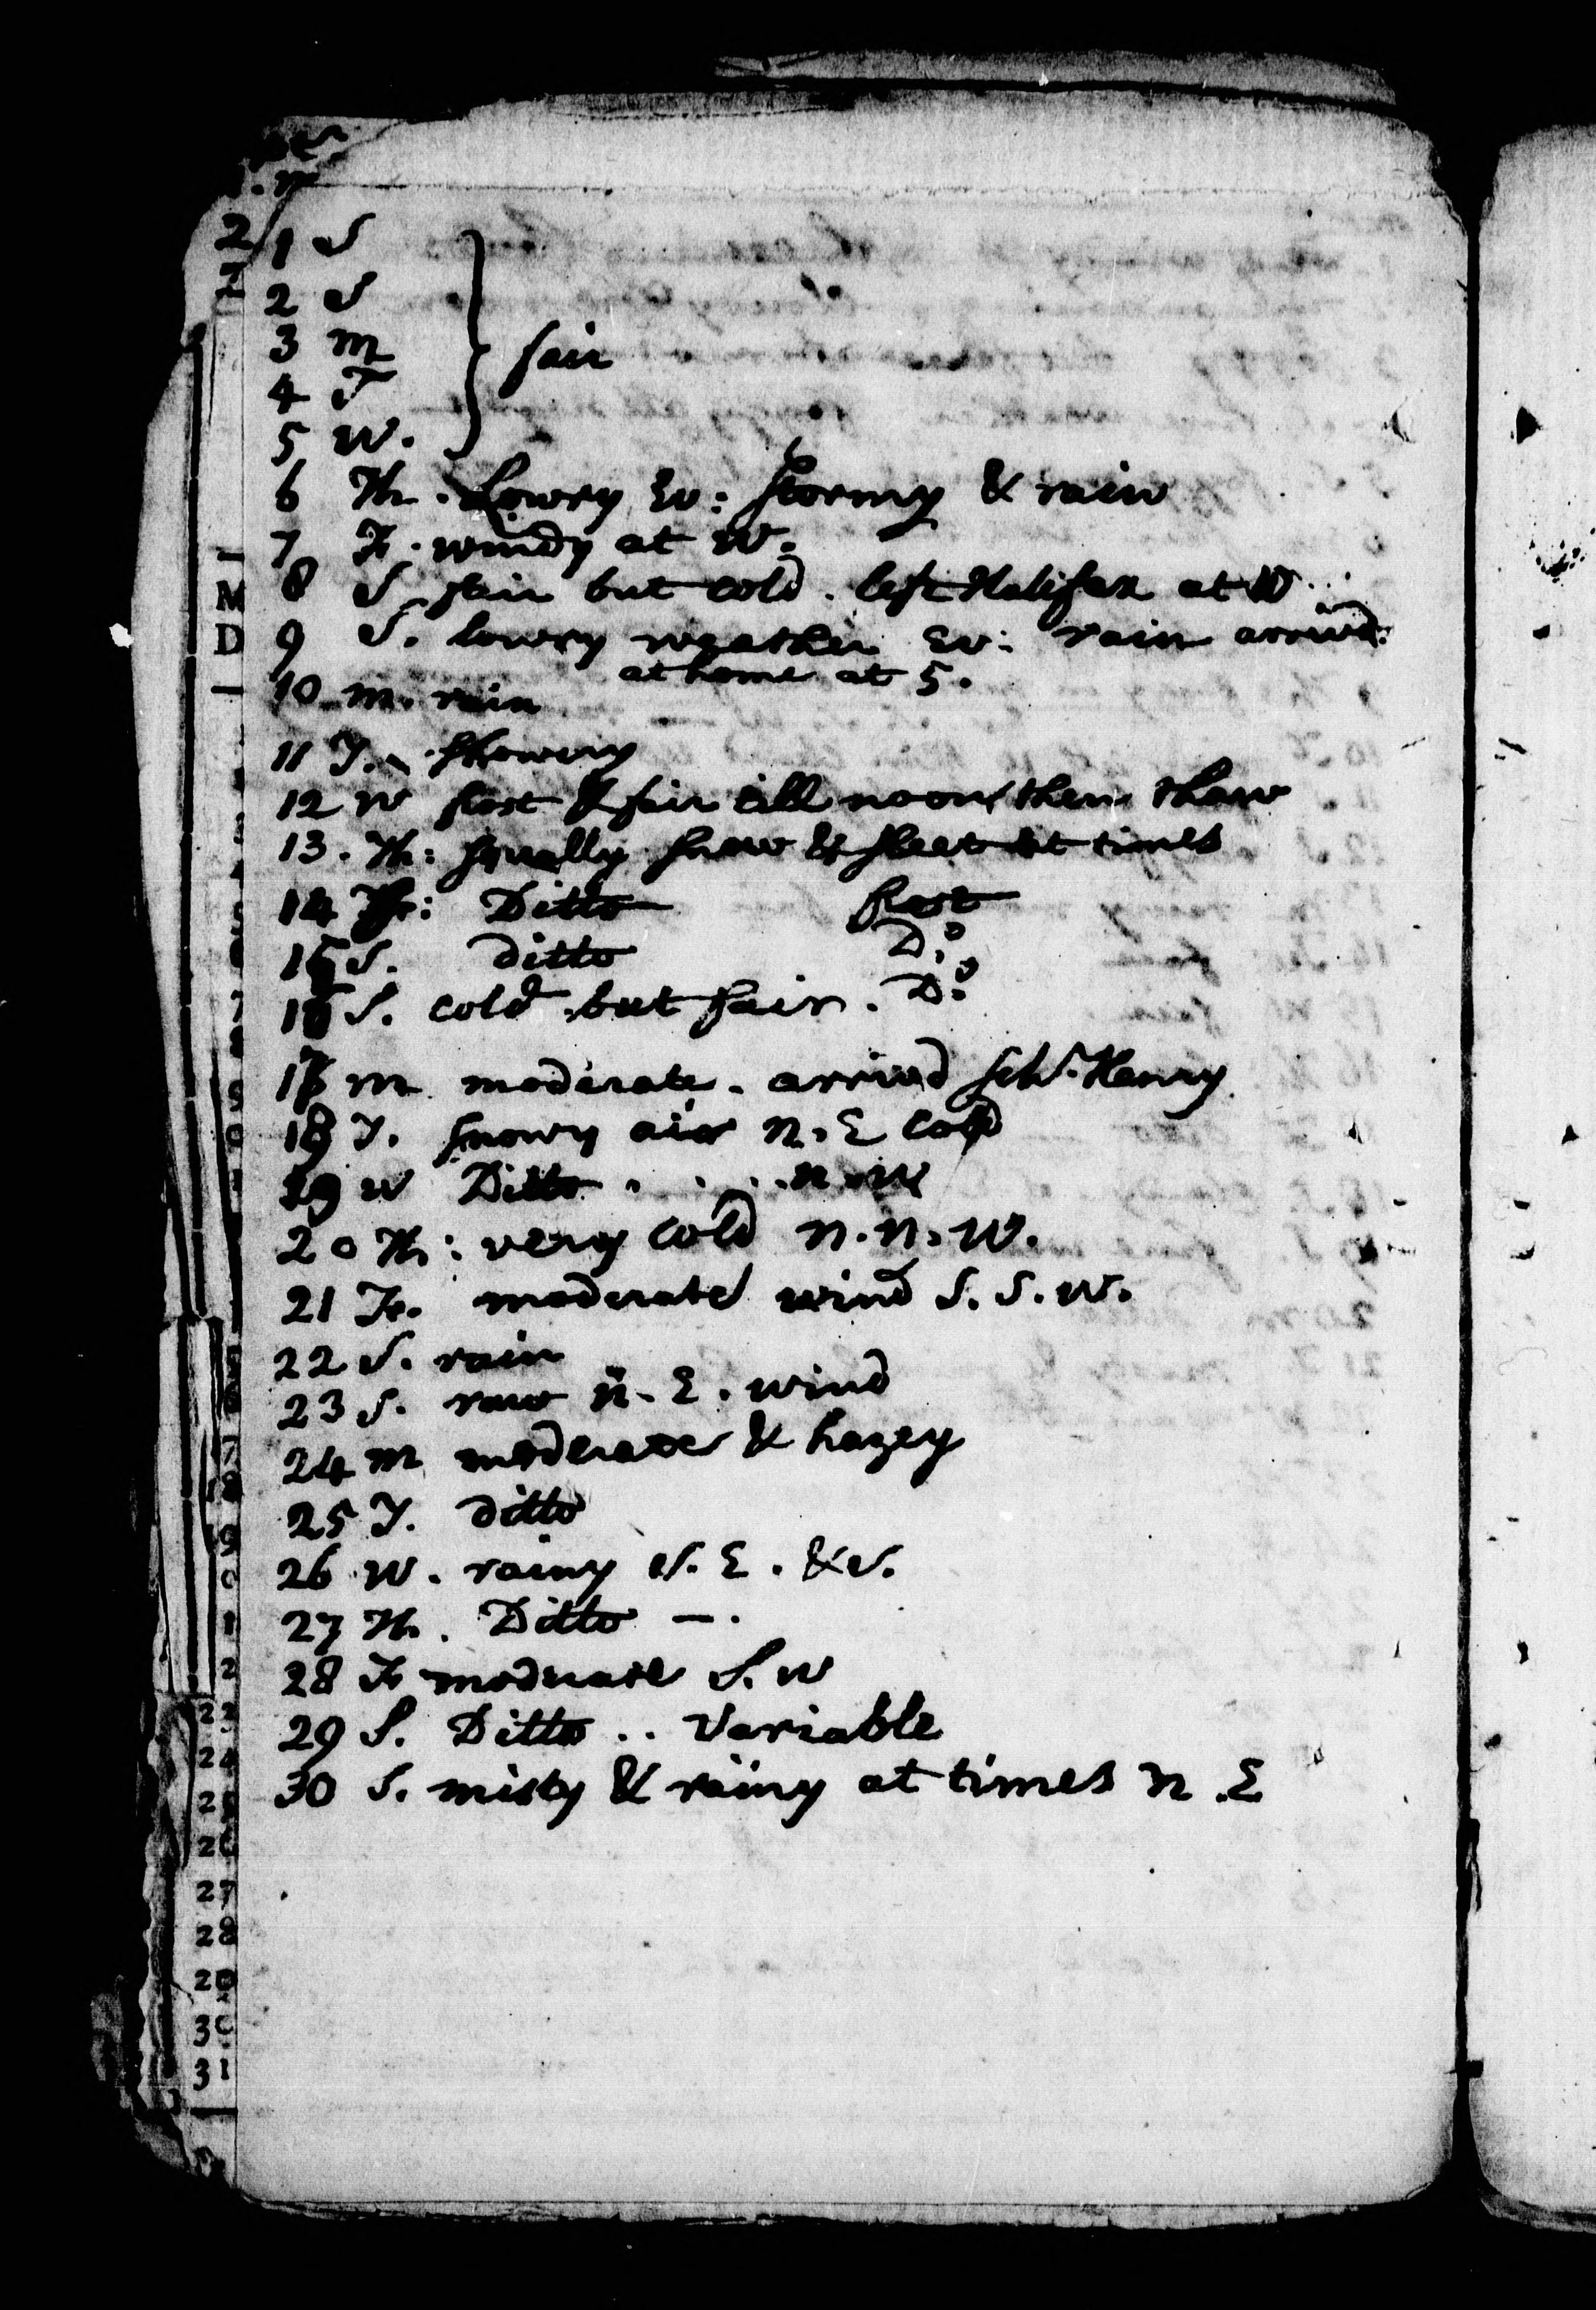 1 S
2 S
3 m
4 T fair
5 W.
6 Th. Lowry Ev: stormy & rain
7 Fr. windy at W.
8 S. fair but cold. left Halifax at
9 S. lowry weather Ev: rain arrivd.
at home at 5.
10 m. rain
11 T. showery
12 W frost & fair till noon then thaw
13. Th: squally snow & sleet at times
14 Fr: Ditto frost
15 S. ditto Do
16 S. cold but fair. Do
17 m moderate. arrived Schr. Henry
18 T. snowy air N. E cold
19 W Ditto . . . . N. W
20 Th: very cold N. N. W.
21 Fr. moderate wind S. S. W.
22 S. rain
23 S. raw N. E. wind
24 m moderate & hazey
25 T. ditto
26 W. rainy S. E. & S.
27 Th. Ditto —.
28 Fr moderate S. W
29 S. Ditto .. Variable
30 S. misty & rainy at times N. E
M
D
27
28
29
30
31